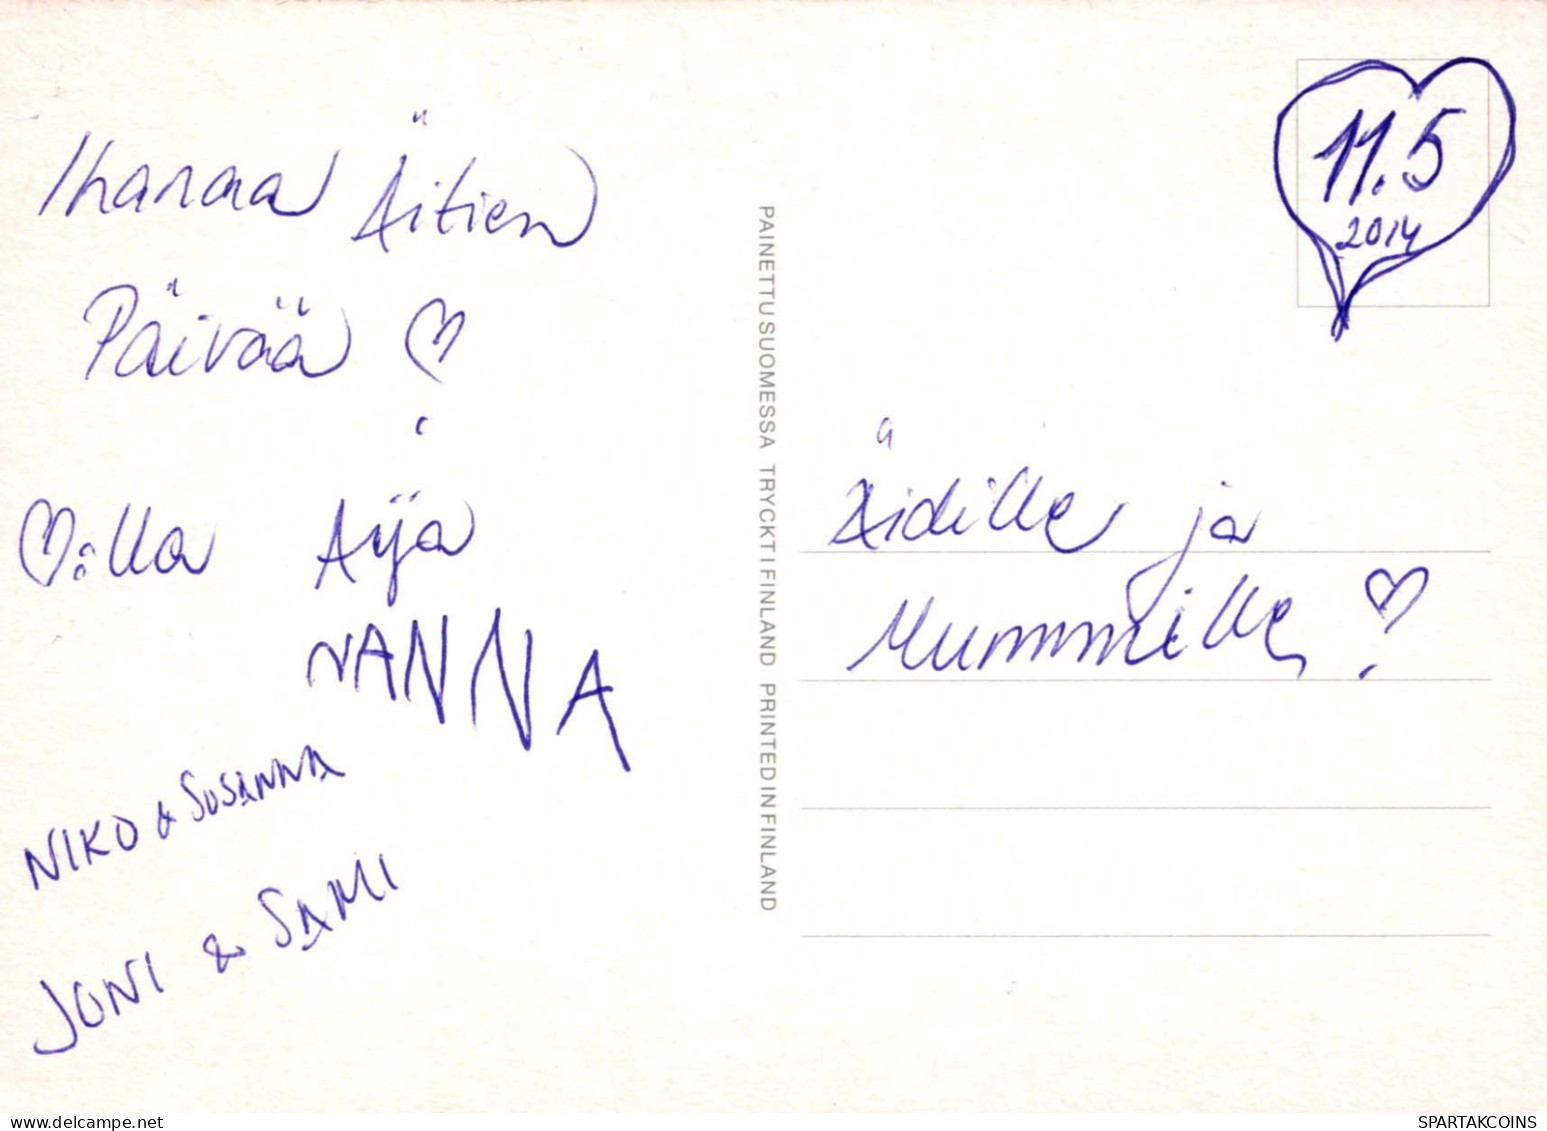 Ihanaa Äitien
Päivää ♡!
♡:lla Aija
NANNA
NIKO & SUSANNA
JONI & SAMI
PAINETTU SUOMESSA TRYCKT I FINLAND PRINTED IN FINLAND
11.5
2014
Äidille ja
Mummille ♡!
SPARTAKCOINS